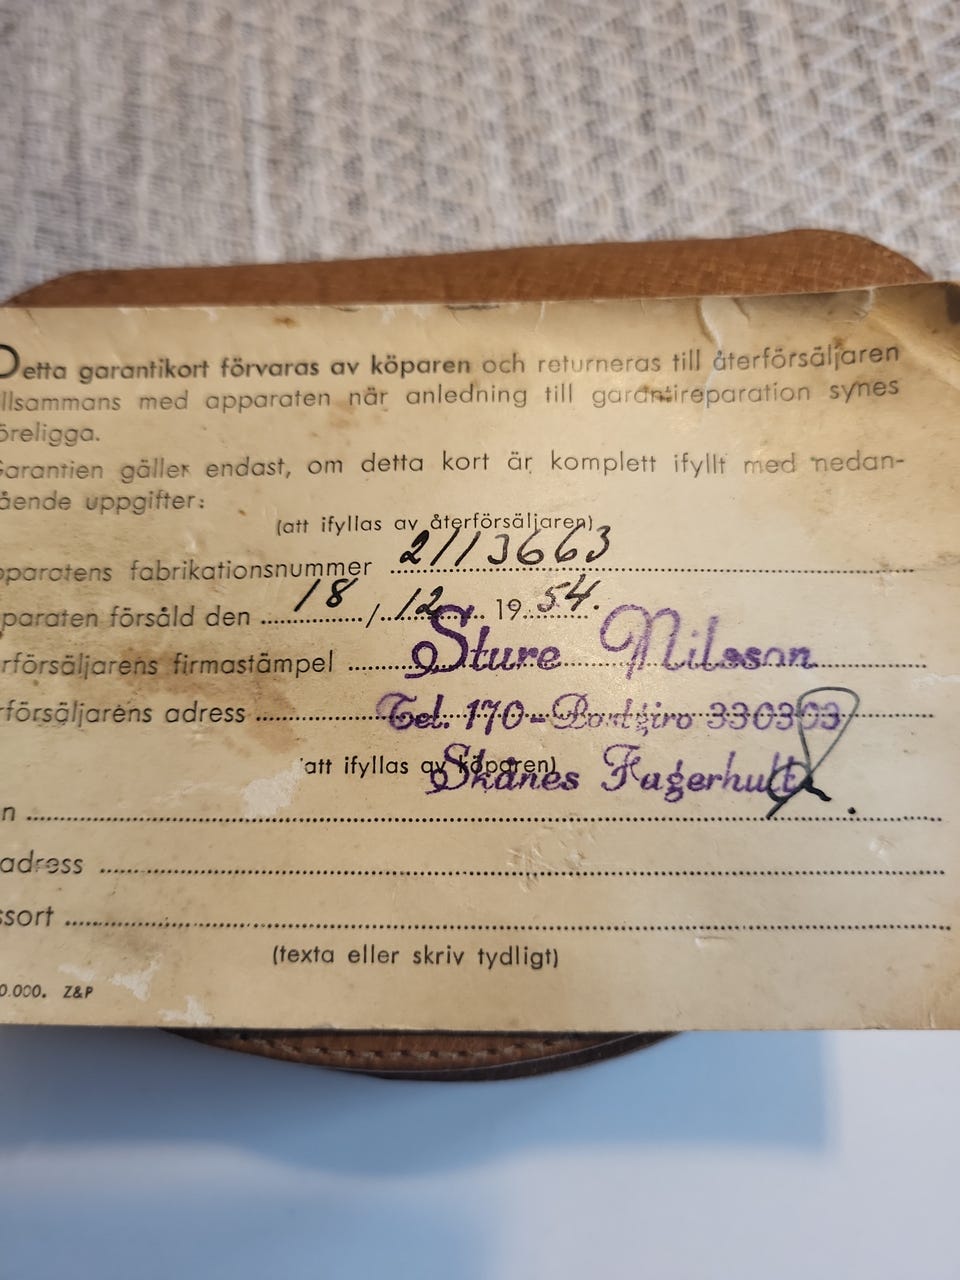 Detta garantikort förvaras av köparen och returneras till återförsäljaren
llsammans med apparaten när anledning till garantireparation synes
öreligga.
Garantien gäller endast, om detta kort är komplett ifyllt med nedan-
ående uppgifter:
(att ifyllas av återförsäljaren)
pparatens fabrikationsnummer 2113663
pparaten försåld den 18 / 12 1954.
rförsäljarens firmastämpel Sture Nilsson
rförsäljarens adress Tel. 170 - Postgiro 330303
(att ifyllas av köparen)
Skånes Fagerhult
n
adress
ssort
(texta eller skriv tydligt)
0.000. Z&P